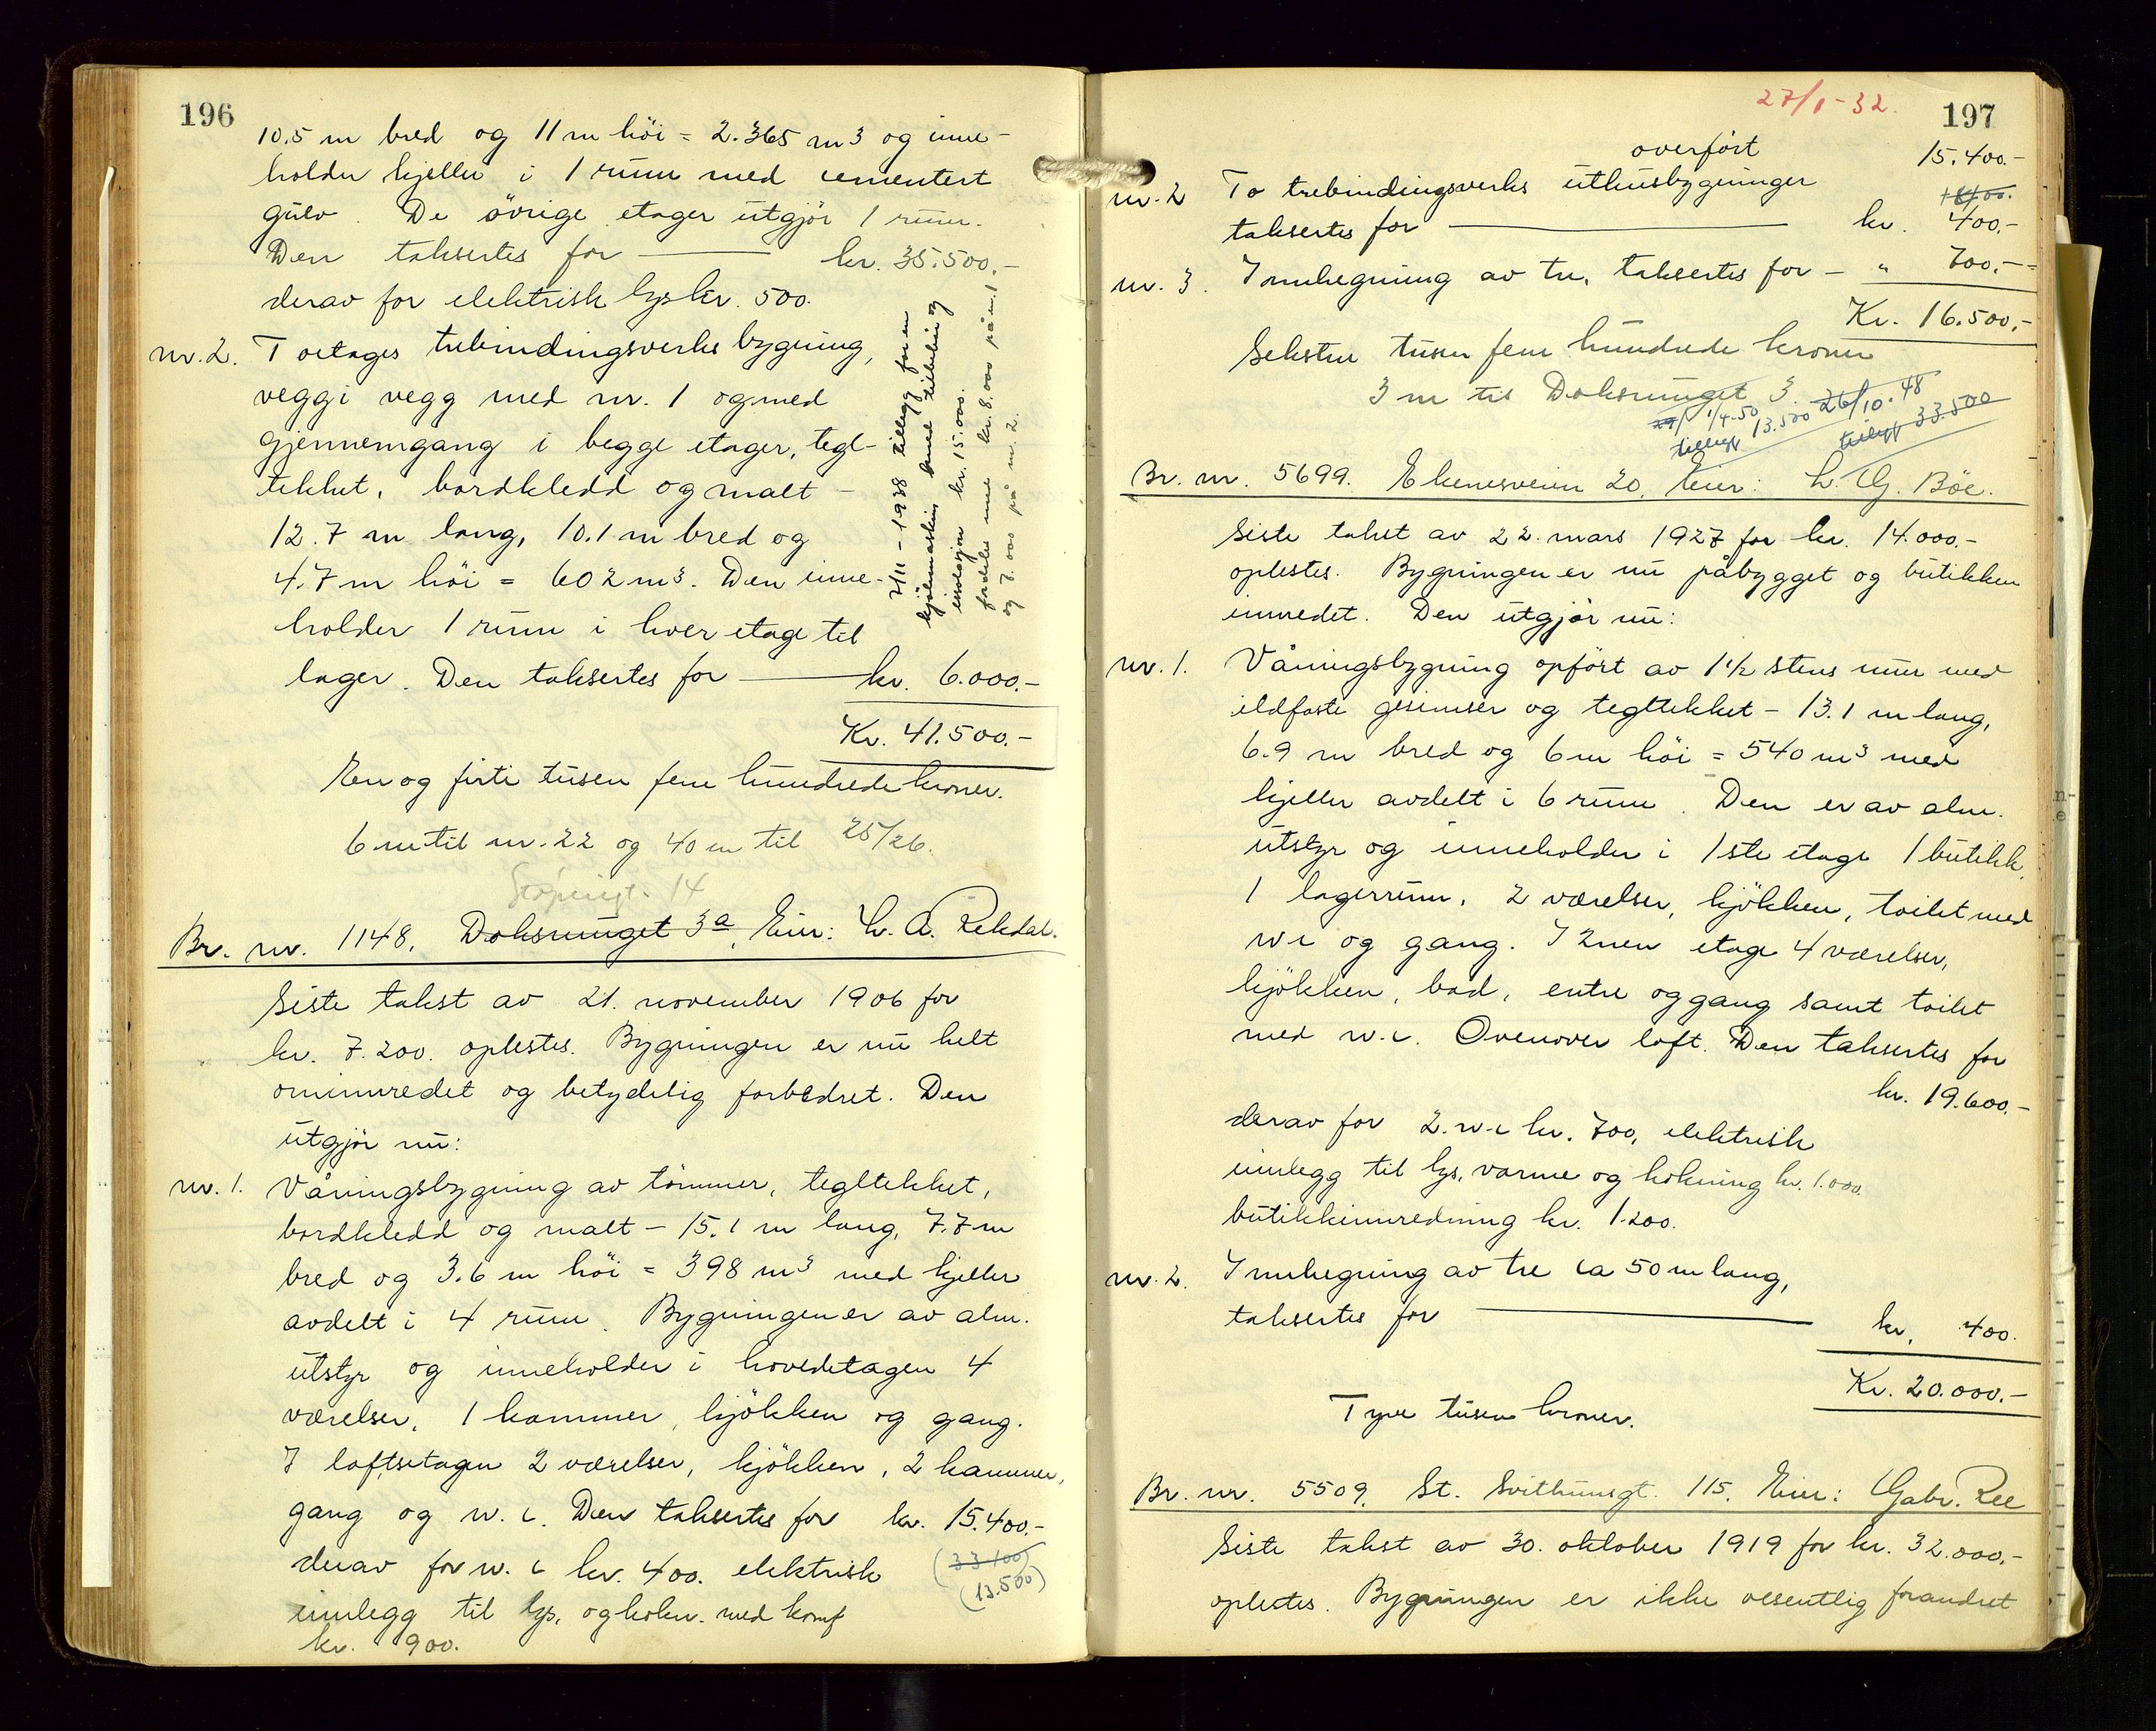 196
10.5 m bred og 11 m höi = 2.365 m3 og inne-
holder kjeller i 1 rum med cementert
gulv. De övrige etager utgjör 1 rum.
Den taksertes for — kr. 35.500.-
derav for elektrisk lys kr. 500.
nr. 2. Toetages trebindingsverks bygning,
vegg i vegg med nr. 1 og med
gjennemgang i begge etager, tegl-
tekket, bordkledd og malt -
12.7 m lang, 10.1 m bred og
4.7 m höi = 602 m3. Den inne-
holder 1 rum i hver etage til
lager. Den taksertes for — kr. 6.000.-
Kr. 41.500.-
2/11-1938 tillegg for en
kjölemaskin med tilbehör og
isolasjon kr. 15.000.
fordeles med kr. 8.000 på nr. 1
og 7.000 på nr. 2.
En og firti tusen fem hundrede kroner.
6 m til nr. 22 og 40 m til 25/26.
Støperigt. 14
Br. nr. 1148. Doksmuget 3a, Eier: L. A. Rekdal.
Siste takst av 21. november 1906 for
kr. 7.200. oplestes. Bygningen er nu helt
ominnredet og betydelig forbedret. Den
utgjör nu:
nr. 1. Våningsbygning av tömmer, tegltekket,
bordkledd og malt - 15.1 m lang, 7.7 m
bred og 3.6 m höi = 398 m3 med kjeller
avdelt i 4 rum. Bygningen er av alm.
utstyr og inneholder i hovedetagen 4
værelser, 1 kammer, kjökken og gang.
I loftsetagen 2 værelser, kjökken, 2 kammer,
gang og w.c. Den taksertes for kr. 15.400.-
derav for w.c kr. 400. elektrisk (33100)
(13.500)
innlegg til lys, og kokn. med komf
kr. 900.
27/1-32.
197
overfört 15.400.-
nr. 2 To trebindingsverks uthusbygninger
taksertes for — kr. 400.-
nr. 3. Innhegning av tre, taksertes for - " 700.-
Kr. 16.500.-
Seksten tusen fem hundrede kroner
3 m til Doksmuget 3.
1/4-50 26/10-48
tillegg 13.500 tillegg 33.500
Br. nr. 5699. Ekenesveien 20, Eier: L. G. Böe.
Siste takst av 22. mars 1927 for kr. 14.000.-
oplestes. Bygningen er nu påbygget og butikken
innredet. Den utgjör nu:
nr. 1. Våningsbygning opfört av 1 1/2 stens mur med
ildfaste gesimser og tegltekket - 13.1 m lang,
6.9 m bred og 6 m höi = 540 m3 med
kjeller avdelt i 6 rum. Den er av alm.
utstyr og inneholder i 1ste etage 1 butikk,
1 lagerrum, 2 værelser, kjökken, toilet med
w c og gang. I 2nen etage 4 værelser,
kjökken, bad, entre og gang samt toilet
med w.c. Ovenover loft. Den taksertes for
kr. 19.600.-
derav for 2. w-c kr. 700, elektrisk
innlegg til lys, varme og kokning kr. 1.000.
butikkinnredning kr. 1.200.
nr. 2. Innhegning av tre ca 50 m lang,
taksertes for — kr. 400.
Kr. 20.000.-
Tyve tusen kroner.
Br. nr. 5509. St. Svithunsgt. 115. Eier: Gabr. Ree
Siste takst av 30. oktober 1919 for kr. 32.000.-
oplestes. Bygningen er ikke vesentlig forandret